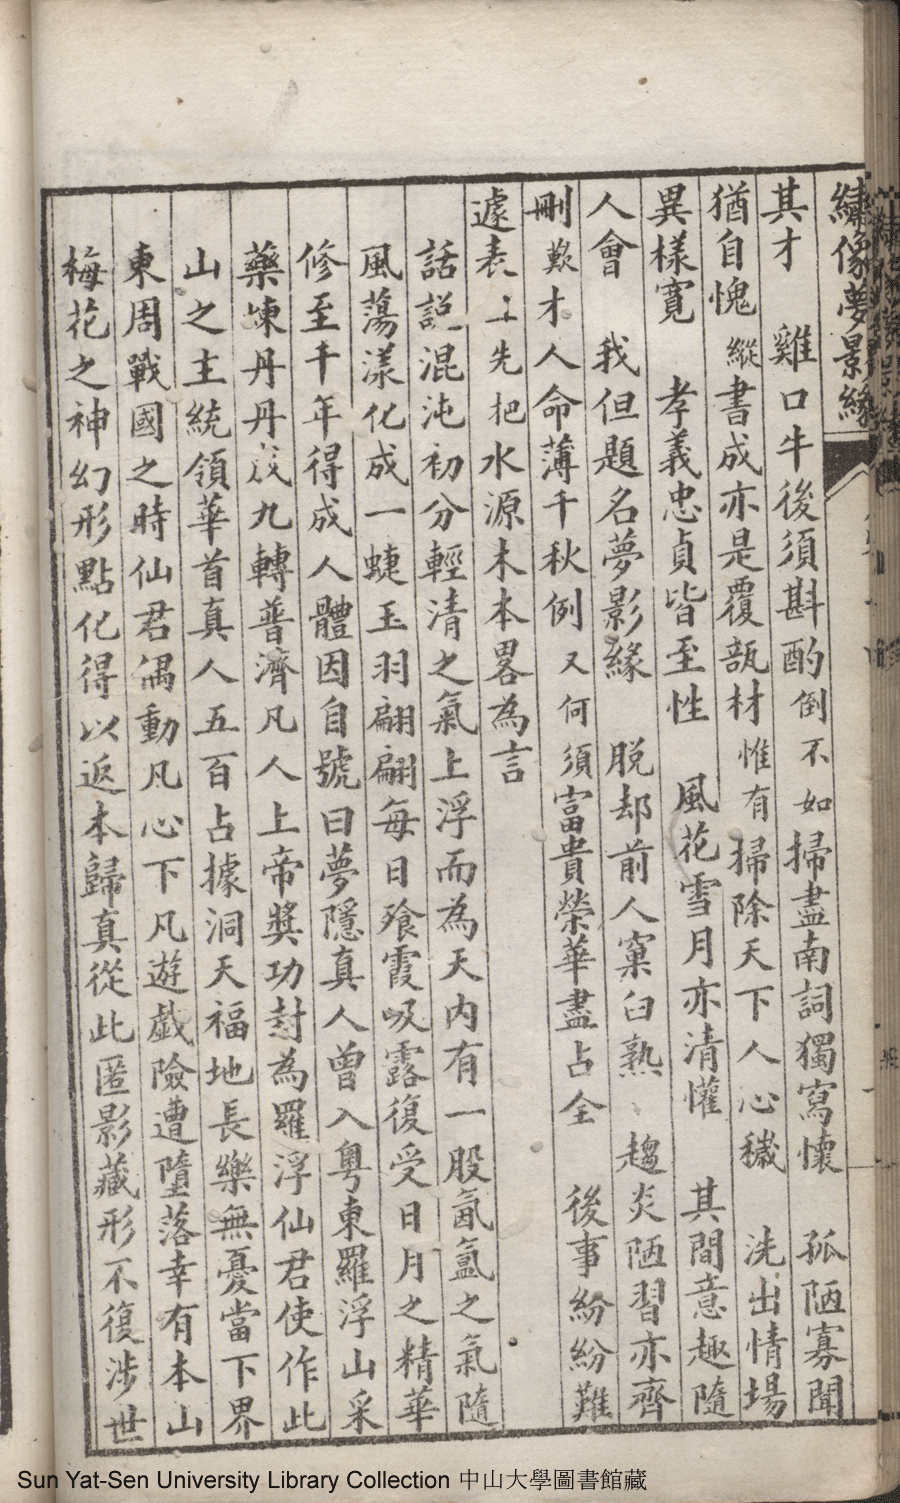 繡像夢景緣
其才　雞口牛後須斟酌倒不如掃盡南詞獨寫懷　孤陋寡聞
猶自愧縱書成亦是覆瓿材惟有掃除天下人心穢　洗出情場
異樣寬　孝義忠貞皆至性　風花雪月亦清懽　其間意趣隨
人會　我但題名夢影緣　脱却前人窠臼熟　趨炎陋習亦齊
刪歎才人命薄千秋例又何須富貴榮華盡占全　後事紛紛難
遽表　先把水源木本畧為言
話説混沌初分輕清之氣上浮而為天内有一股氤氳之氣隨
風蕩漾化成一蜨玉羽翩翩每日飧霞吸露復受日月之精華
修至千年得成人體因自號曰夢隱真人曾入粵東羅浮山采
藥煉丹丹成九轉普濟凡人上帝獎功封為羅浮仙君使作此
山之主統領華首真人五百占據洞天福地長樂無憂當下界
東周戰國之時仙君偶動凡心下凡遊戯險遭墮落幸有本山
梅花之神幻形點化得以返本歸真從此匿影藏形不復涉世
Sun Yat-Sen University Library Collection 中山大學圖書館藏